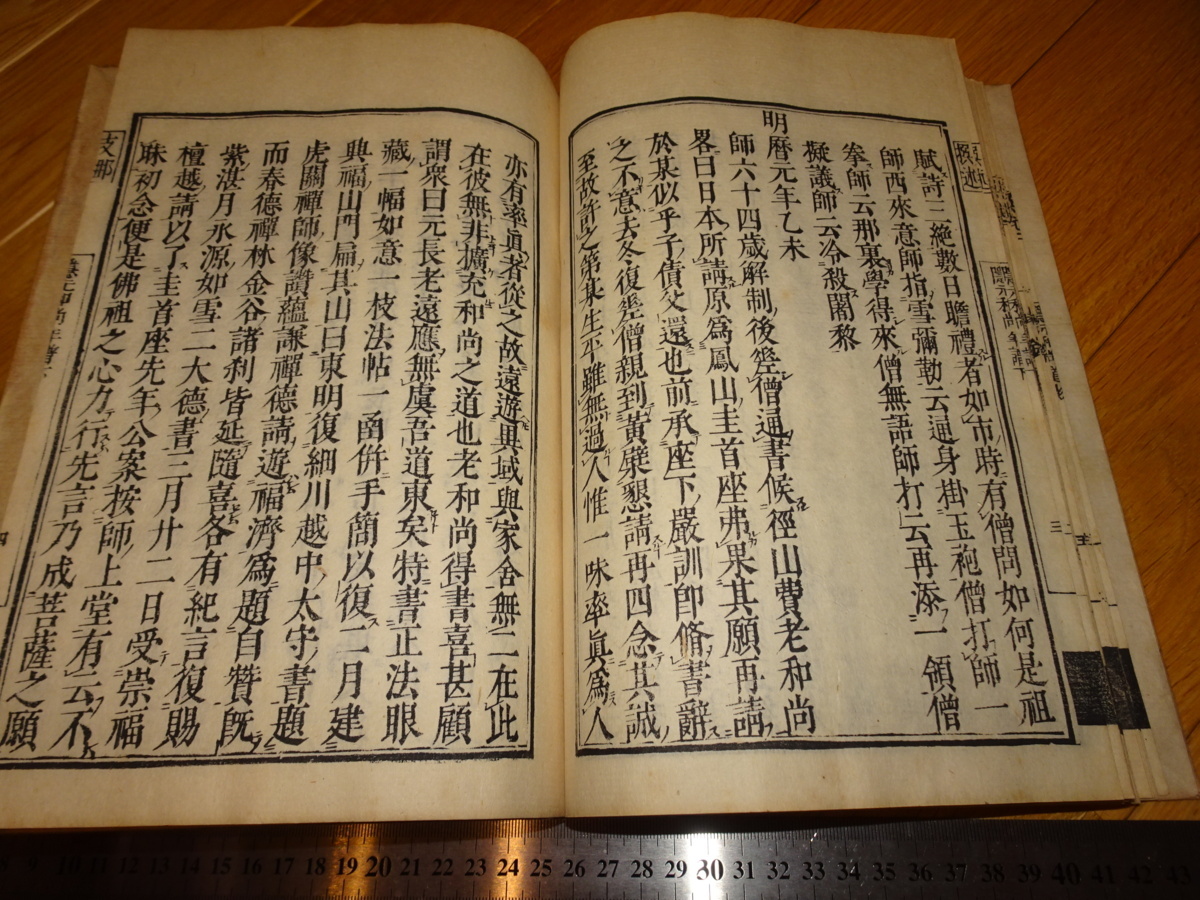 賦詩二絕數日瞻禮者如市時有僧問如何是祖
師西來意師指雪彌勒云通身掛玉袍僧打師一
拳師云那裏學得來僧無語師打云再添一領僧
擬議師云冷殺闍黎
明曆元年乙未
師六十四歲解制後㘴僧通書候徑山費老和尚
畧曰日本所請原爲鳳山圭首座弗果其願再請
於某似乎子債父還也前承座下嚴訓卽脩書辭
之不意去冬復㘴僧親到黃檗懇請再四念其誠
至故許之第某生平雖無過人惟一味率眞爲人
亦有率眞者從之故遠遊異域與家舍無二在此
在彼無非擴充和尚之道也老和尚得書喜甚顧
謂衆曰元長老遠應無虞吾道東矣特書正法眼
藏一幅如意一枝法帖一函倂手簡以復二月建
興福山門扁其山曰東明復細川越中太守書題
虎關禪師像讚蘊謙禪德請遊福濟爲題自贊旣
而春德禪林金谷諸刹皆延隨喜各有紀言復賜
紫湛月永源如雪二大德書三月廿二日受崇福
檀越請以了圭首座先年公案按師上堂有云不
昧初念便是佛祖之心力行先言乃成菩薩之願
支那
撰述